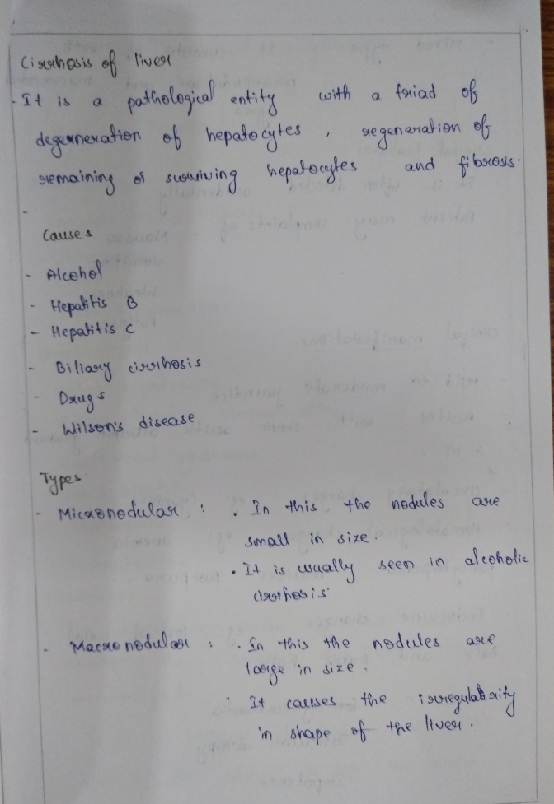 Cirrhosis of liver
- It is a pathological entity with a triad of
degerneration of hepatocytes, regeneration of
remaining or surviving hepatocytes and fibrosis.
-
Causes
- Alcohol
- Hepatitis B
- Hepatitis C
- Biliary cirrhosis
- Drugs
- Wilson's disease
Types
- Micronodular : . In this the nodules are
small in size.
. It is usually seen in alcoholic
cirrhosis
- Macronodular : . In this the nodules are
large in size.
. It causes the irregularity
in shape of the liver.